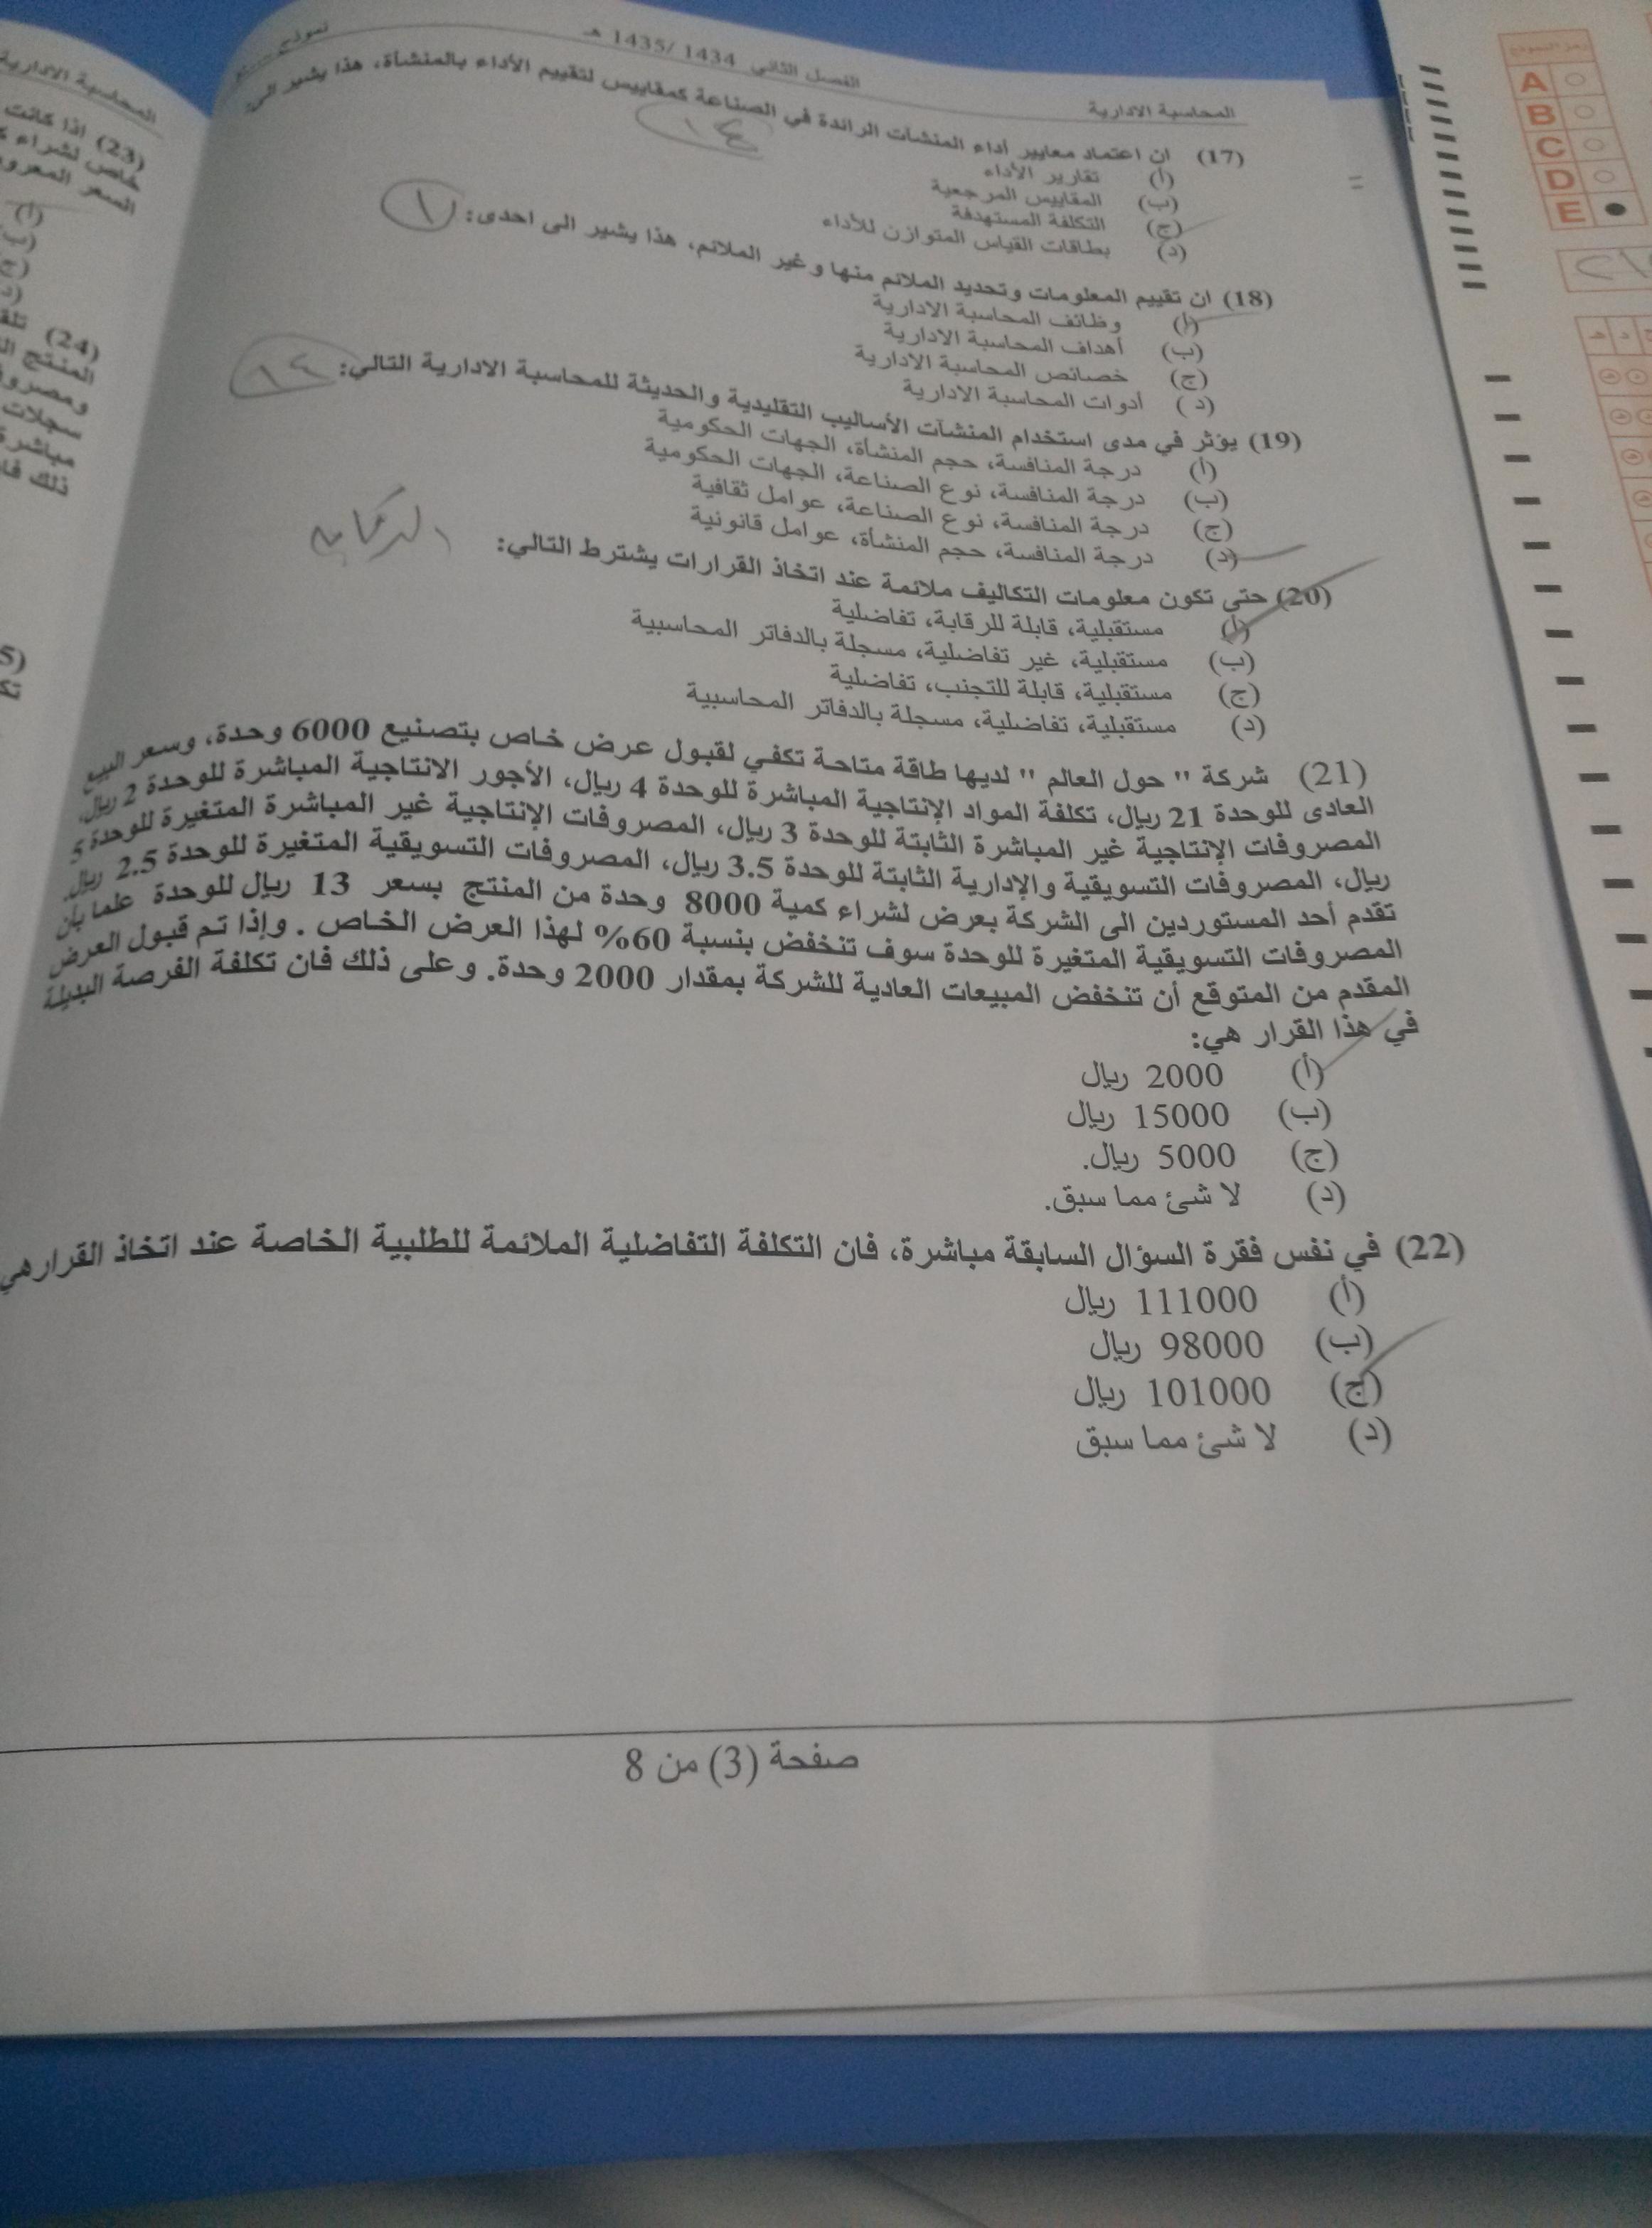 المحاسبة الادارية
الفصل الثاني 1434 /1435 هـ
نموذج
(17) ان اعتماد معايير أداء المنشآت الرائدة في الصناعة كمقاييس لتقييم الأداء بالمنشأة، هذا يشير الى:
(أ) تقارير الأداء
(ب) المقاييس المرجعية
(ج) التكلفة المستهدفة
(د) بطاقات القياس المتوازن للأداء
(18) ان تقييم المعلومات وتحديد الملائم منها وغير الملائم، هذا يشير الى احدى:
(أ) وظائف المحاسبة الادارية
(ب) أهداف المحاسبة الادارية
(ج) خصائص المحاسبة الادارية
(د) أدوات المحاسبة الادارية
(19) يؤثر في مدى استخدام المنشآت الأساليب التقليدية والحديثة للمحاسبة الادارية التالي:
(أ) درجة المنافسة، حجم المنشأة، الجهات الحكومية
(ب) درجة المنافسة، نوع الصناعة، الجهات الحكومية
(ج) درجة المنافسة، نوع الصناعة، عوامل ثقافية
(د) درجة المنافسة، حجم المنشأة، عوامل قانونية
(20) حتى تكون معلومات التكاليف ملائمة عند اتخاذ القرارات يشترط التالي:
(أ) مستقبلية، قابلة للرقابة، تفاضلية
(ب) مستقبلية، غير تفاضلية، مسجلة بالدفاتر المحاسبية
(ج) مستقبلية، قابلة للتجنب، تفاضلية
(د) مستقبلية، تفاضلية، مسجلة بالدفاتر المحاسبية
(21) شركة " حول العالم " لديها طاقة متاحة تكفي لقبول عرض خاص بتصنيع 6000 وحدة، وسعر البيع
العادى للوحدة 21 ريال، تكلفة المواد الإنتاجية المباشرة للوحدة 4 ريال، الأجور الانتاجية المباشرة للوحدة 2 ريال،
المصروفات الإنتاجية غير المباشرة الثابتة للوحدة 3 ريال، المصروفات الإنتاجية غير المباشرة المتغيرة للوحدة 5
ريال، المصروفات التسويقية والإدارية الثابتة للوحدة 3.5 ريال، المصروفات التسويقية المتغيرة للوحدة 2.5 ريال.
تقدم أحد المستوردين الى الشركة بعرض لشراء كمية 8000 وحدة من المنتج بسعر 13 ريال للوحدة علما بأن
المصروفات التسويقية المتغيرة للوحدة سوف تنخفض بنسبة 60% لهذا العرض الخاص . وإذا تم قبول العرض
المقدم من المتوقع أن تنخفض المبيعات العادية للشركة بمقدار 2000 وحدة. وعلى ذلك فان تكلفة الفرصة البديلة
في هذا القرار هي:
(أ) 2000 ريال
(ب) 15000 ريال
(ج) 5000 ريال.
(د) لا شئ مما سبق.
(22) في نفس فقرة السؤال السابقة مباشرة، فان التكلفة التفاضلية الملائمة للطلبية الخاصة عند اتخاذ القرارهي
(أ) 111000 ريال
(ب) 98000 ريال
(ج) 101000 ريال
(د) لا شئ مما سبق
صفحة (3) من 8
المحاسبة الادارية
(23) اذا كانت
خاص لشراء
السعر المعرو
(أ)
(24)
المنتج
ومصروف
سجلات
مباشرة
ذلك فا
رمز النموذج
A
B
C
D
E